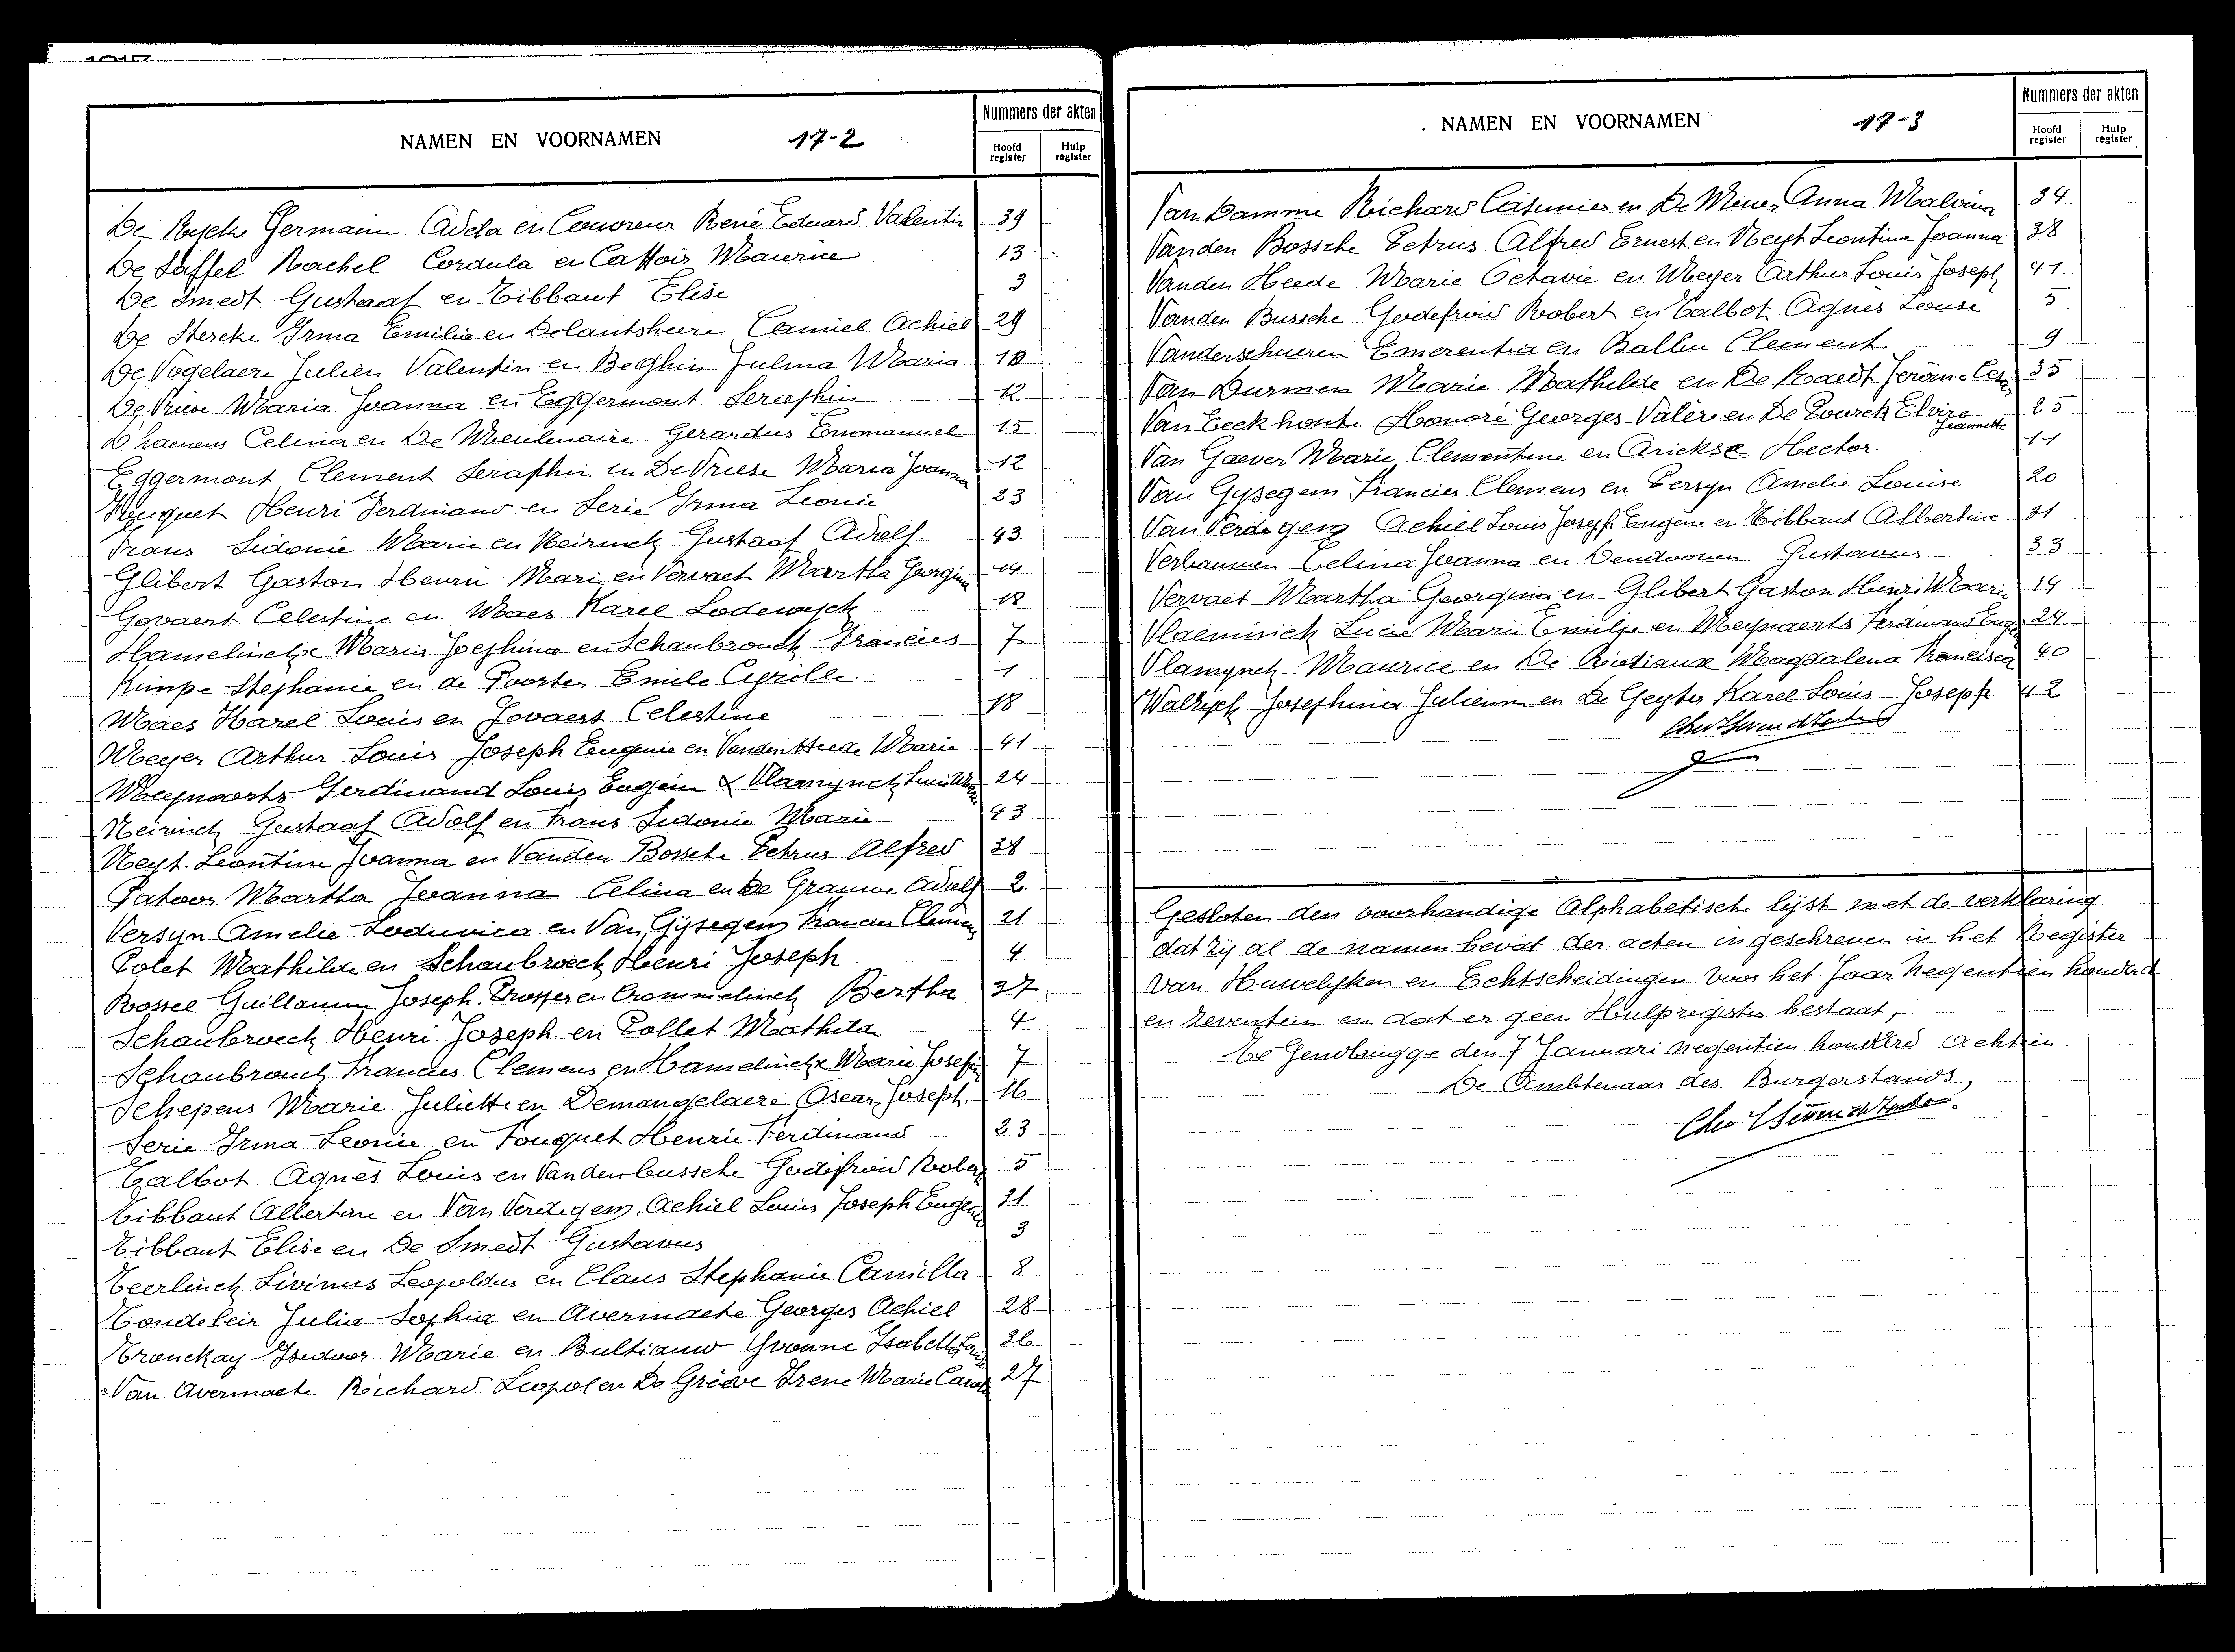 NAMEN EN VOORNAMEN 17-2 Nummers der akten
Hoofd register Hulp register
De Rycke Germaine Adela en Couvreur René Eduard Valentin 39
De Saffel Rachel Cordula en Cattoir Maurice 13
De Smedt Gustaaf en Tibbaut Elise 3
De Stercke Irma Emilia en Delantsheere Camiel Achiel 29
De Vogelaere Julien Valentin en Beghin Julma Maria 10
De Vriese Maria Joanna en Eggermont Seraphin 12
D'haenens Celina en De Meulenaire Gerardus Emmanuel 15
Eggermont Clement Seraphin en De Vriese Maria Joanna 12
Henri Ferdinand en Serie Irma Leonie 23
Frans Sidonie Marie en Neirinck Gustaaf Adolf. 43
Glibert Gaston Henri Marie en Vervaet Martha Georgina 14
Govaert Celestine en Maes Karel Lodewyck 18
Hamelinckx Maria Josephina en Schaubrouck Francies 7
Kimpe Stephanie en de Poorter Emile Cyrille. 1
Maes Karel Louis en Govaert Celestine 18
Meyer Arthur Louis Joseph Eugenie en Vanden Heede Marie 41
Meynaerts Ferdinand Louis Eugein & Vlamynck 24
Neirinck Gustaaf Adolf en Frans Sidonie Marie 43
Neyt Leontine Joanna en Vanden Bossche Petrus Alfred 38
Patoor Martha Joanna Celina en De Grauwe Adolf 2
Versyn Amelie Lodunica en Van Gijsegem Francies Clemens 21
Polet Mathilde en Schaubroeck Henri Joseph 4
Rossel Guillaume Joseph. Prosper en Crommelinck Bertha 37
Schaubroeck Henri Joseph en Pollet Mathilda 4
Schaubrouck Francies Clemens en Hamelinckx Marie Josefin 7
Schepens Marie Juliette en Demangelaere Oscar Joseph. 16
Serie Irma Leonie en Fouquet Henri Ferdinand 23
Talbot Agnès Louis en Vandenbussche Godefroid Robert 5
Tibbaut Albertine en Van Verdegem. Achiel Louis Joseph Eugene 31
Tibbaut Elise en De Smedt Gustavus 3
Teerlinck Livinus Leopoldus en Claus Stephanie Camilla 8
Tondeleir Julia Sophia en Avermaete Georges Achiel 28
Tronckay Isidoor Marie en Bultiauw Yvonne Isabelle 36
Van Avermaete Richard Leopol en De Griève Irene Marie 27
NAMEN EN VOORNAMEN 17-3 Nummers der akten
Hoofd register Hulp register
Van Damme Richard Casimier en De Meyer Anna Malvina 34
Vanden Bossche Petrus Alfred Ernest en Neyt Leontine Joanna 38
Vanden Heede Marie Octavie en Meyer Arthur Louis Joseph 41
Vanden Bussche Godefroid Robert en Talbot Agnès Louise 5
Vanderschueren Emerentia en Balliu Clement. 9
Van Durmen Marie Mathilde en De Raedt Jerôme 35
Van Eeckhoute Honoré Georges Valère en De Pourck Elvire Jeannette 25
Van Gaever Marie Clementine en Arickse Hector. 11
Van Gysegem Francies Clemens en Persyn Amelie Louise 20
Van Verdegem Achiel Louis Joseph Eugène en Tibbaut Albertine 31
Verbauwen Celina Joanna en Dendooven Gustavus 33
Vervaet Martha Georgina en Glibert Gaston Henri Marie 14
Vlaeminck Lucie Marie Emilie en Meynaerts Ferdinand 24
Vlamynck Maurice en De Riotiaux Magdalena Francisca 40
Walrijck Josephina Julienne en De Geyter Karel Louis Joseph 42
Gesloten den voorhandige Alphabetische lijst met de verklaring
dat zij al de namen bevat der acten ingeschreven in het Register
van Huwelyken en Echtscheidingen voor het Jaar Negentien honderd
en zeventien en dat er geen Hulpregister bestaat,
Te Gendbrugge den 7 Januari negentien honderd achtien
De Ambtenaar des Burgerstands,